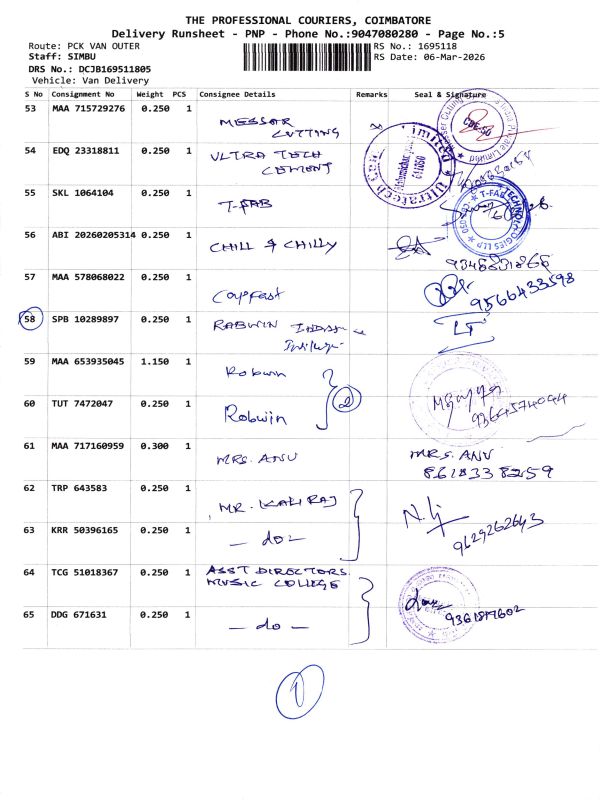 THE PROFESSIONAL COURIERS, COIMBATORE
Delivery Runsheet - PNP - Phone No.:9047080280 - Page No.:5
Route: PCK VAN OUTER RS No.: 1695118
Staff: SIMBU RS Date: 06-Mar-2026
DRS No.: DCJB169511805
Vehicle: Van Delivery
S No Consignment No Weight PCS Consignee Details Remarks Seal & Signature
53 MAA 715729276 0.250 1 MESSAR CUTTING
54 EDQ 23318811 0.250 1 ULTRA TECH CEMENT
55 SKL 1064104 0.250 1 T-FAB
56 ABI 20260205314 0.250 1 CHILL & CHILLY
57 MAA 578068022 0.250 1 9566433598
58 SPB 10289897 0.250 1 RABWIN
59 MAA 653935045 1.150 1 Robwin
60 TUT 7472047 0.250 1 Robwin 2
61 MAA 717160959 0.300 1 MRS. ANU MRS. ANU
8618338259
62 TRP 643583 0.250 1 MR. KALIRAJ
63 KRR 50396165 0.250 1 - do - 9629262643
64 TCG 51018367 0.250 1 ASST DIRECTORS MUSIC COLLEGE
65 DDG 671631 0.250 1 - do -
1